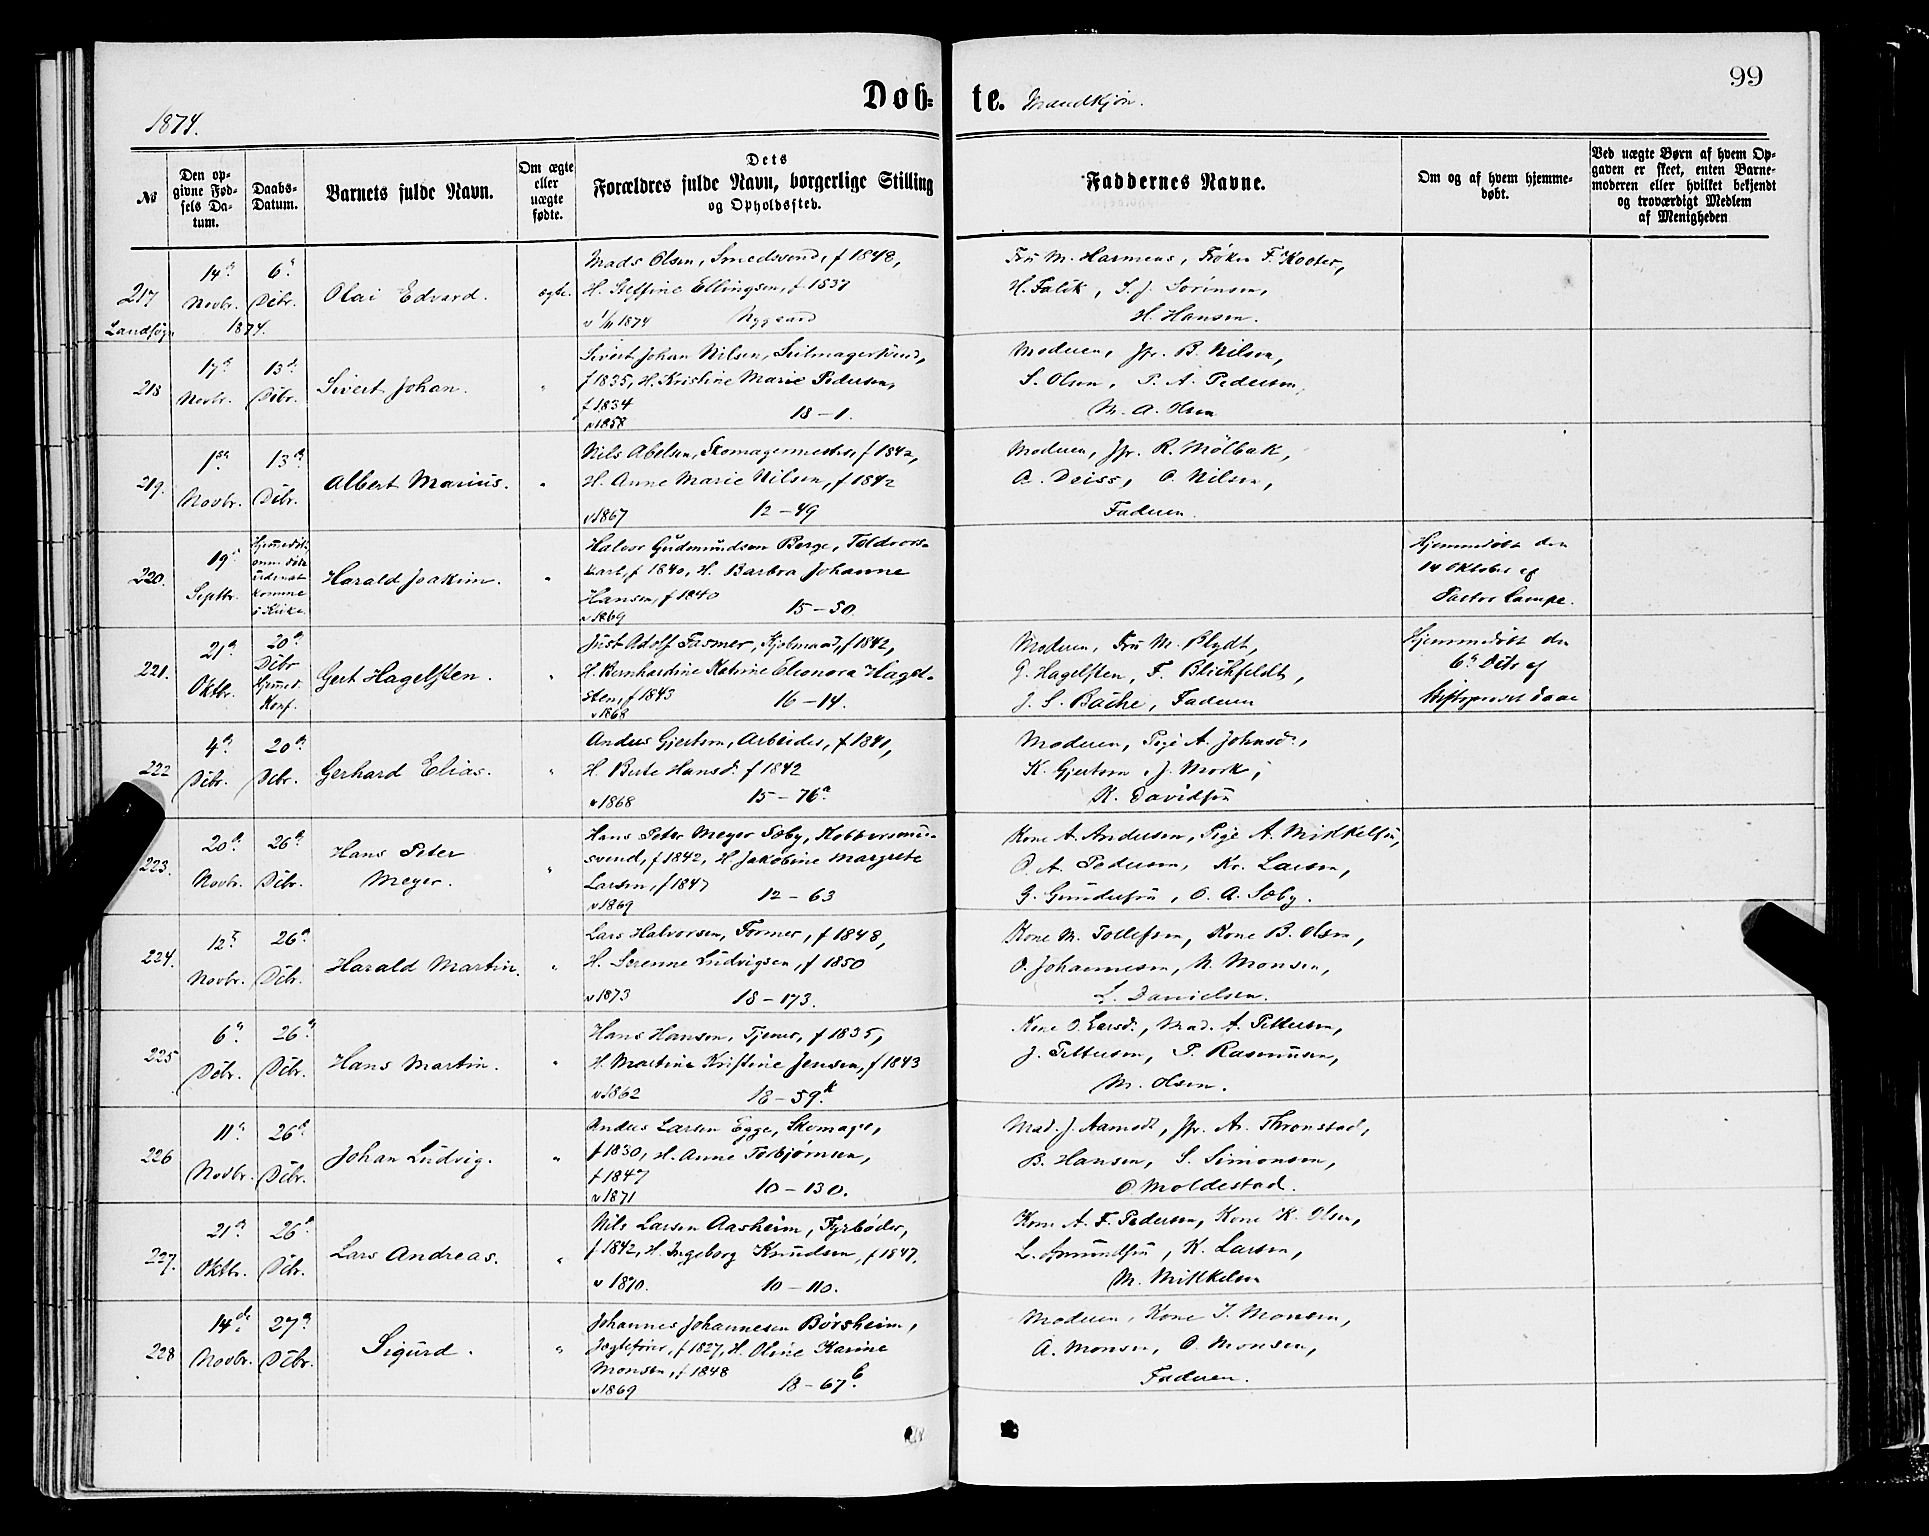 99
Døb-te. Mandkjøn.
1874.
№
Den op-
givne Fød-
sels Da-
tum.
Daabs-
Datum.
Barnets fulde Navn.
Om ægte
eller
uægte
fødte.
Dets
Forældres fulde Navn, borgerlige Stilling
og Opholdssted.
Faddernes Navne.
Om og af hvem hjemme-
døbt.
Ved uægte Børn af hvem Op-
gaven er skeet, enten Barne-
moderen eller hvilket bekjendt
og troværdigt Medlem
af Menigheden
217
Landsogn
14de
Novbr.
1874.
6te
Dcbr.
Olai Edvard.
ægte.
Mads Olsen, Smedsvend, f 1848,
H. Steffine Ellingsen, f 1837
v 1/11 1874 Nygaard
Fru M. Harmens, Frøken F. Kooter,
H. Falck, S. J. Sørensen,
H. Hansen.
218
17de
Novbr.
13de
Dcbr.
Sivert Johan.
"
Sivert Johan Nilsen, Seilmagersvend,
f 1835, H. Kristine Marie Pedersen,
f 1834
v 1858 18 - 1.
Moderen, Jfr. B. Nilsen,
S. Olsen, P. A. Pedersen,
M. A. Olsen
219.
1ste
Novbr.
13de
Dcbr.
Albert Marius.
"
Nils Abelsen, Skomagermester f 1842,
H. Anne Marie Nilsen, f 1842
v 1867 12 - 49
Moderen, Jfr. R. Mølbak,
A. Deiss, O. Nilsen,
Faderen.
220.
19de
Septbr.
Hjemmedøbt
uden at
komme
i Kirke
Harald Joakim.
"
Halvor Gudmundsen Berge, Toldvovs-
karl, f 1840, H. Barbra Johanne
Hansen, f 1840
v 1869 15 - 50
Hjemmedøbt den
14 Oktober af
Pastor Lampe.
221.
21de
Oktbr.
20de
Dcbr
Hjemmed.
Konf.
Gert Hagelsten.
"
Just Adolf Fasmer, Kjøbmand, f 1842,
H. Bernhardine Katrine Eleonora Hagel-
sten, f 1843
v 1868 16 - 14.
Moderen, Fru M. Blydt,
G. Hagelsten, F. Blichfeldt,
J. S. Bache, Faderen
Hjemmedøbt den
6te Dcbr af
Stiftsprovst Daae
222
4de
Dcbr.
20de
Dcbr.
Gerhard Elias.
"
Anders Gjertsen, Arbeider, f 1841,
H. Berte Hansd. f 1842
v 1868 15 - 76a
Moderen, Pige A. Johnsd.,
K. Gjertsen, J. Mork,
K. Davidsen
223.
20de
Novbr.
26de
Dcbr.
Hans Peter
Meyer.
"
Hans Peter Meyer Søby, Kobbersmed-
svend, f 1842, H. Jakobine Margrete
Larsen, f 1847
v 1869 12 - 63
Kone A. Andersen, Pige A. Mikkelsen,
O. A. Pedersen, Kr. Larsen,
G. Gundersen, O. A. Søby.
224.
12te
Novbr.
26de
Dcbr.
Harald Martin.
"
Lars Halvorsen, Former, f 1848,
H. Serenne Ludvigsen, f 1850
v 1873 18 - 173.
Kone M. Tollefsen, Kone B. Olsen,
O. Johannesen, N. Monsen,
L. Danielsen.
225
6te
Dcbr.
26de
Dcbr.
Hans Martin.
"
Hans Hansen, Tjener, f 1835,
H. Martine Kristine Jensen, f 1843
v 1862 18 - 59k
Kone O. Larsd., Mad. A. Pettersen,
J. Pettersen, P. Rasmusen,
M. Olsen.
226
11te
Novbr.
26de
Dcbr.
Johan Ludvig.
"
Anders Larsen Egge, Skomager,
f 1830, H. Anne Torbjørnsen,
f 1847
v 1871 10 - 130.
Mad. J. Aamodt, Jfr. A. Thronstad,
B. Hansen, S. Simonsen,
O Moldestad.
227.
21de
Oktbr.
26de
Dcbr.
Lars Andreas.
"
Nils Larsen Aasheim, Fyrbøder,
f 1842, H. Ingeborg Knudsen, f 1847.
v 1870. 10 - 110.
Kone A. F. Pedersen, Kone K. Olsen,
L. Amundsen, K. Larsen,
M. Mikkelsen
228
14de
Novbr.
27de
Dcbr.
Sigurd.
"
Johannes Johannesen Børsheim,
Jægtefører, f 1827, H. Oline Karine
Monsen, f 1848
v 1869 18 - 67b.
Moderen, Kone I. Monsen,
A. Monsen, O. Monsen,
Faderen.